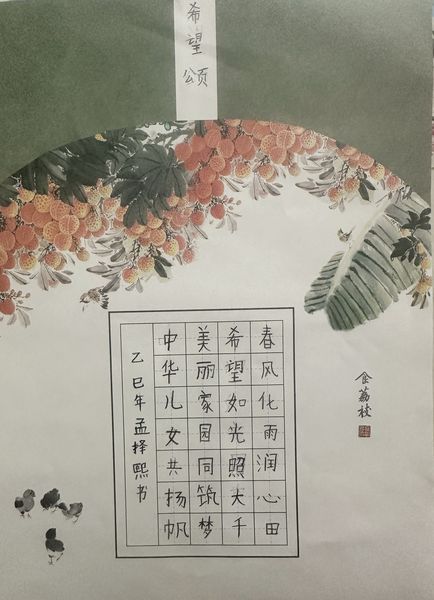 希望颂
春风化雨润心田
希望如光照大千
美丽家园同筑梦
中华儿女共扬帆
乙巳年孟择熙书
金荔枝